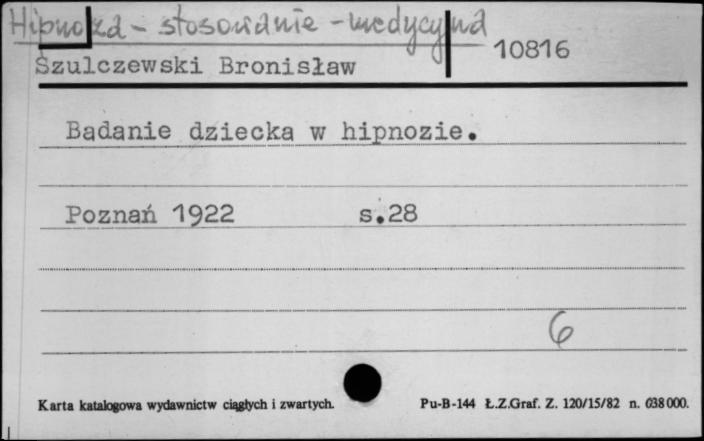 Hipnoza - stosowanie - medycyna
10816
Szulczewski Bronisław
Badanie dziecka w hipnozie.
Poznań 1922 s.28
6
Karta katalogowa wydawnictw ciągłych i zwartych. Pu-B-144 Ł.Z.Graf. Z. 120/15/82 n. 638 000.